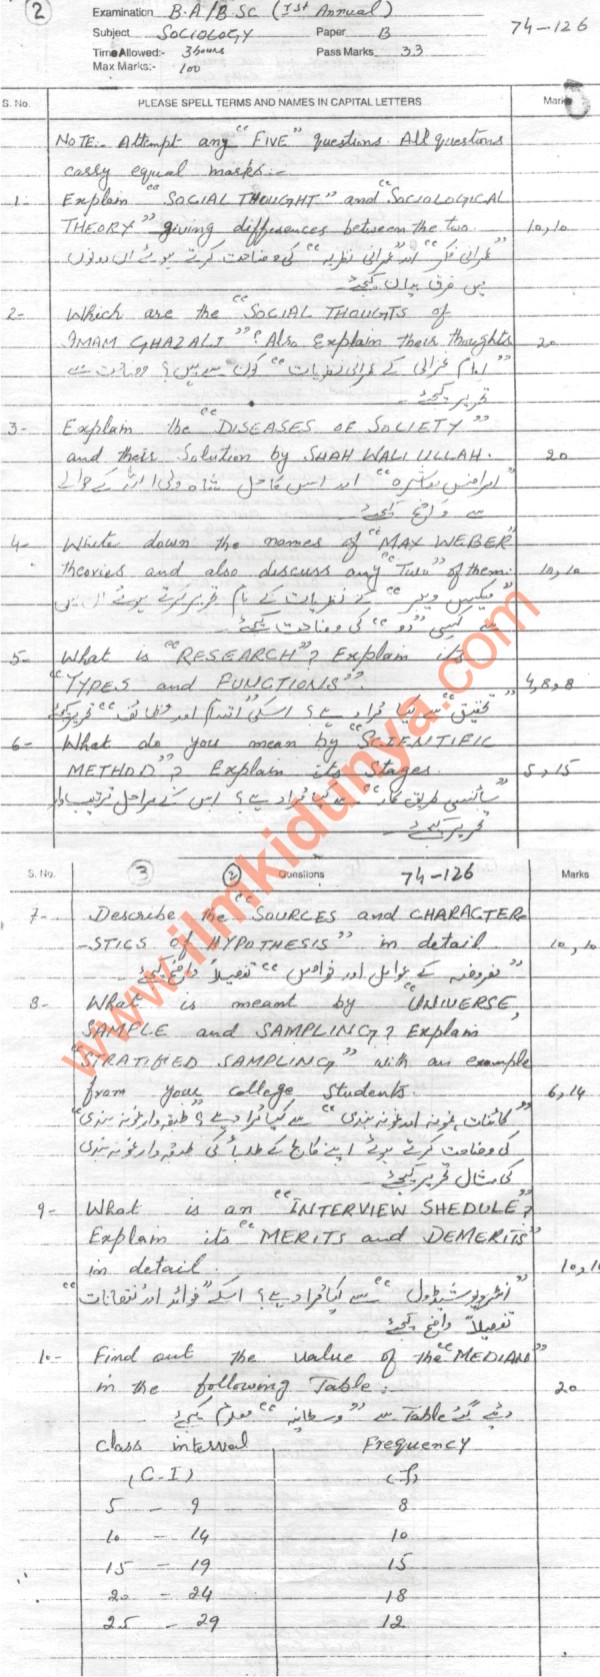 2
Examination B.A/B.Sc (Ist Annual)
74-126
Subject SOCIOLOGY Paper B
Time Allowed:- 3 hours Pass Marks 33
Max Marks:- 100
S. No. PLEASE SPELL TERMS AND NAMES IN CAPITAL LETTERS Mark
NOTE:- Attempt any "FIVE" questions. All questions
carry equal marks:-
1- Explain "SOCIAL THOUGHT" and "SOCIOLOGICAL
THEORY" giving differences between the two. 10,10
"عمرانی فکر" اور "عمرانی نظریہ" کی وضاحت کرتے ہوئے ان دونوں
میں فرق بیان کیجئے
2- Which are the "SOCIAL THOUGHTS of
IMAM GHAZALI"? Also Explain their thoughts 20
"امام غزالی کے عمرانی نظریات" کون سے ہیں؟ وضاحت سے
تحریر کیجئے۔
3- Explain the "DISEASES OF SOCIETY"
and their Solution by SHAH WALI ULLAH. 20
"امراض معاشرہ" اور اس کا حل شاہ ولی اللہ کے حوالے
سے واضح کیجئے
4- Write down the names of "MAX WEBER"
theories and also discuss any "Two" of them: 10,10
"میکس ویبر" کے نظریات کے نام تحریر کرتے ہوئے ان میں
سے کسی "دو" کی وضاحت کیجئے۔
5- What is "RESEARCH"? Explain its
"TYPES and FUNCTIONS". 4,8,8
"تحقیق" سے کیا مراد ہے؟ اسکی "اقسام اور وظائف" تحریر کیجئے
6- What do you mean by "SCIENTIFIC
METHOD"? Explain its Stages. 5,15
"سائنسی طریق کار" سے کیا مراد ہے؟ اس کے مراحل ترتیب وار
تحریر کیجئے۔
S. No. 3 2 Questions 74-126 Marks
7- Describe the "SOURCES and CHARACTER-
-STICS of HYPOTHESIS" in detail 10,10
"مفروضہ کے عوامل اور خواص" تفصیلاً واضح کیجئے
8- What is meant by "UNIVERSE,
SAMPLE and SAMPLING? Explain
"STRATIFIED SAMPLING" with an example
from your college students. 6,14
"کائنات، نمونہ اور نمونہ بندی" سے کیا مراد ہے؟ "طبقہ وار نمونہ بندی"
کی وضاحت کرتے ہوئے اپنے کالج کے طلباء کی طبقہ وار نمونہ بندی
کی مثال تحریر کیجئے۔
9- What is an "INTERVIEW SHEDULE"?
Explain its "MERITS and DEMERITS"
in detail. 10,10
"انٹرویو شیڈول" سے کیا مراد ہے؟ اسکے "فوائد اور نقصانات"
تفصیلاً واضح کیجئے
10- Find out the value of the "MEDIAN"
in the following Table: 20
دیئے گئے Table سے "وسطانیہ" معلوم کیجئے
Class interval Frequency
(C.I) (f)
5 - 9 8
10 - 14 10
15 - 19 15
20 - 24 18
25 - 29 12
www.ilmkidunya.com